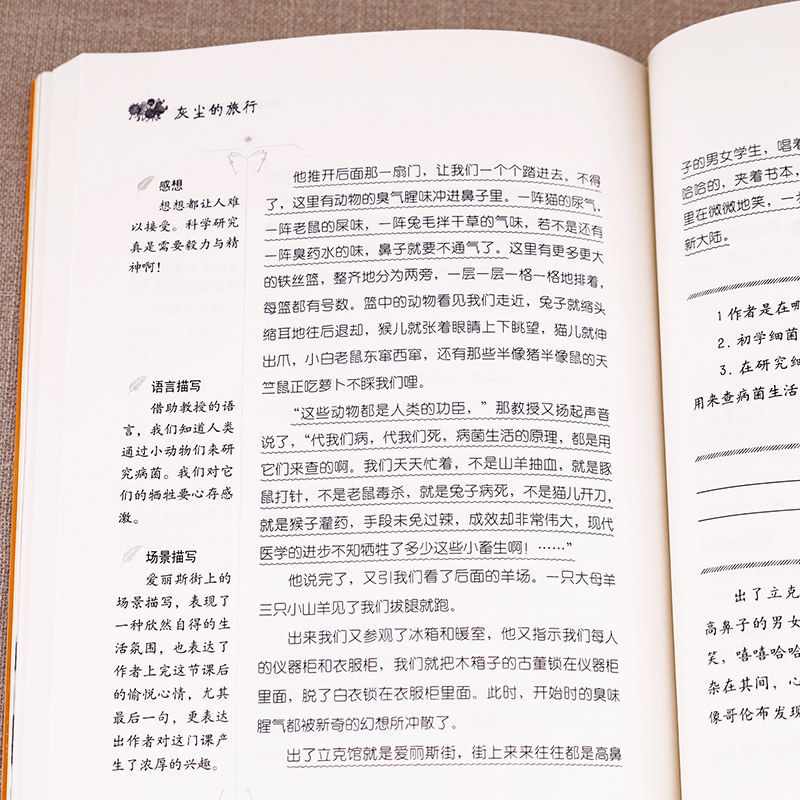 灰尘的旅行
感想
想想都让人难
以接受。科学研究
真是需要毅力与精
神啊!
语言描写
借助教授的语
言，我们知道人类
通过小动物们来研
究病菌。我们对它
们的牺牲要心存感
激。
场景描写
爱丽斯街上的
场景描写，表现了
一种欣然自得的生
活氛围，也表达了
作者上完这节课后
的愉悦心情，尤其
最后一句，更表达
出作者对这门课产
生了浓厚的兴趣。
他推开后面那一扇门，让我们一个个踏进去。不得
了，这里有动物的臭气腥味冲进鼻子里。一阵猫的尿气，
一阵老鼠的屎味，一阵兔毛拌干草的气味，若不是还有
一阵臭药水的味，鼻子就要不通气了。这里有更多更大
的铁丝篮，整齐地分为两旁，一层一层一格一格地排着，
每篮都有号数。篮中的动物看见我们走近，兔子就缩头
缩耳地往后退却，猴儿就张着眼睛上下眺望，猫儿就伸
出爪，小白老鼠东窜西窜，还有那些半像猪半像鼠的天
竺鼠正吃萝卜不睬我们哩。
“这些动物都是人类的功臣，”那教授又扬起声音
说了，“代我们病，代我们死，病菌生活的原理，都是用
它们来查的啊。我们天天忙着，不是山羊抽血，就是豚
鼠打针，不是老鼠毒杀，就是兔子病死，不是猫儿开刀，
就是猴子灌药，手段未免过辣，成效却非常伟大，现代
医学的进步不知牺牲了多少这些小畜生啊！……”
他说完了，又引我们看了后面的羊场。一只大母羊
三只小山羊见了我们拔腿就跑。
出来我们又参观了冰箱和暖室，他又指示我们每人
的仪器柜和衣服柜，我们就把木箱子的古董锁在仪器柜
里面，脱了白衣锁在衣服柜里面。此时，开始时的臭味
腥气都被新奇的幻想所冲散了。
出了立克馆就是爱丽斯街，街上来来往往都是高鼻
子的男女学生，唱着
哈哈的，夹着书本，
里在微微地笑，一
新大陆。
1 作者是在哪
2. 初学细菌
3. 在研究细
用来查病菌生活
出了立克
高鼻子的男女
笑，嘻嘻哈哈
杂在其间，心
像哥伦布发现